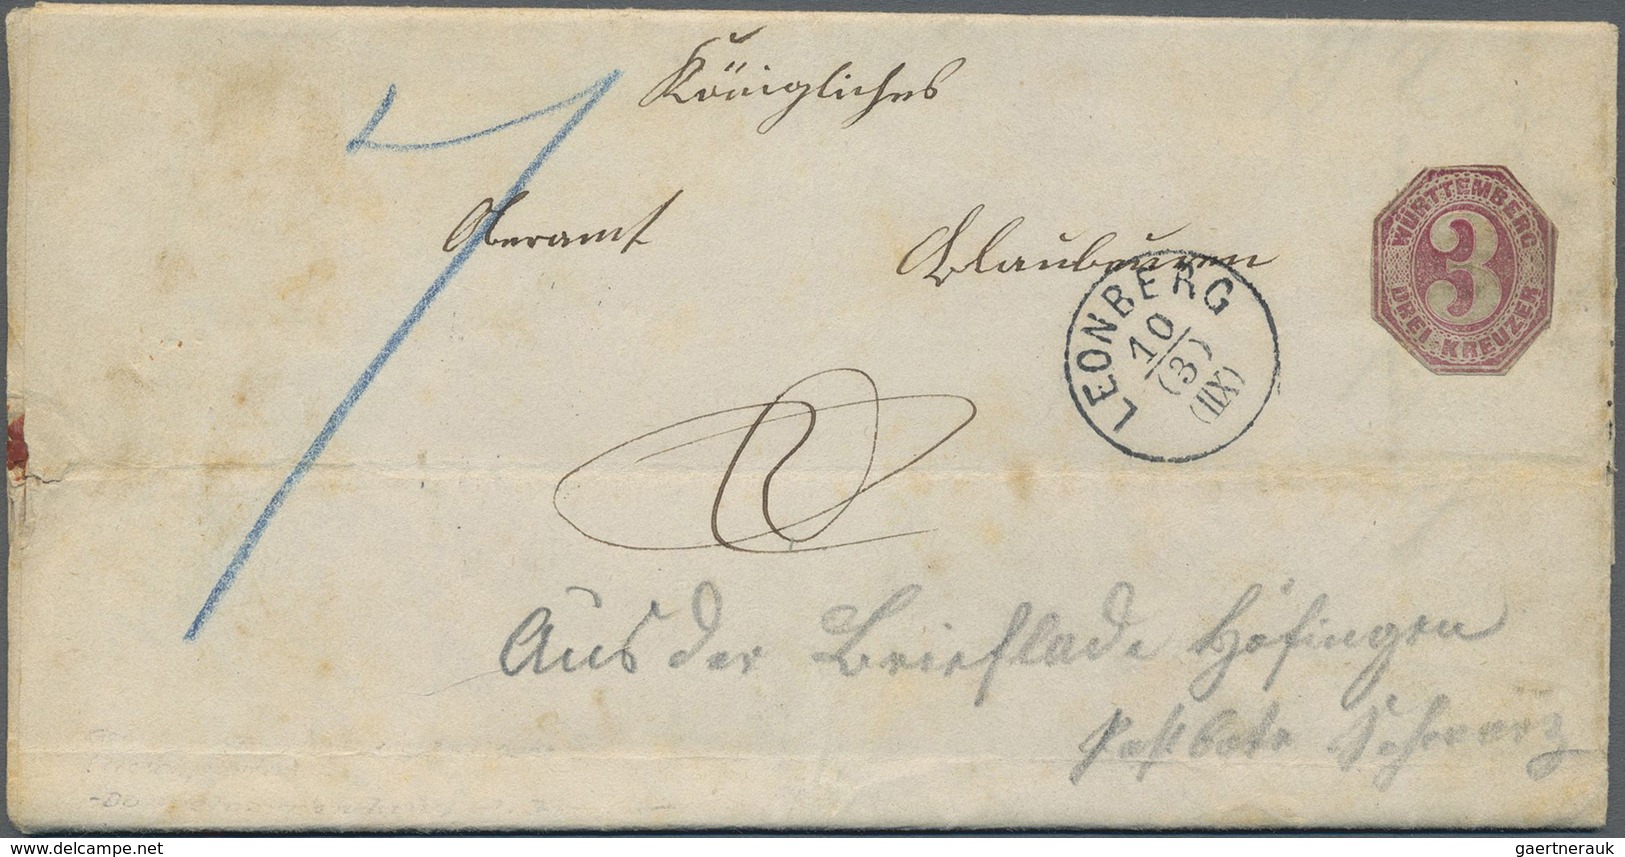 Königliches
Oberamt Blaubeuren
WÜRTTEMBERG
3
DREI KREUZER
LEONBERG
10
(3)
(IIX)
7
Aus der Brieflade Höfingen
Postbote Schwarz
www.delcampe.net
gaertnerauk